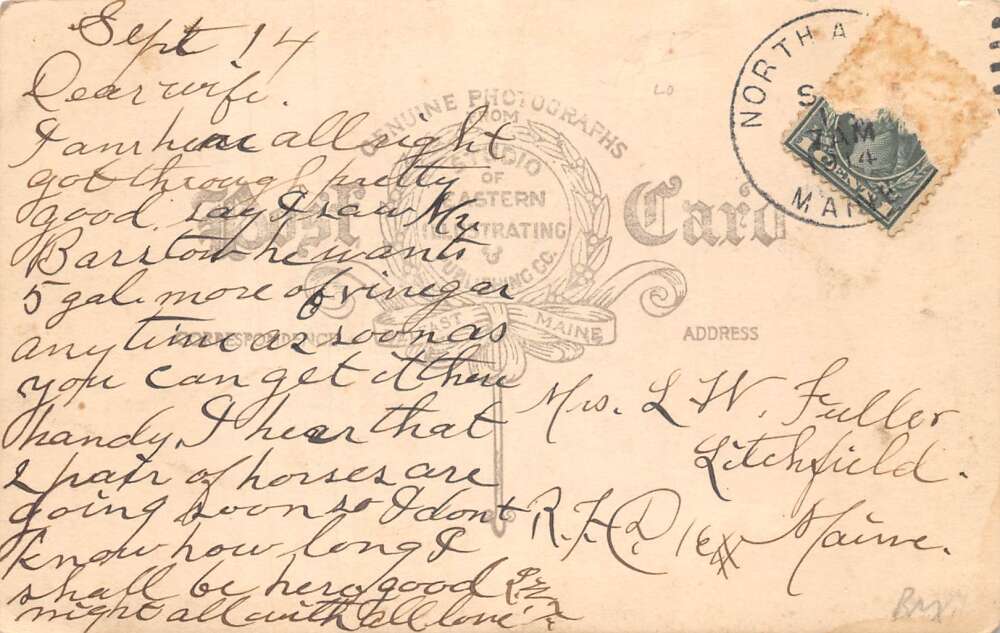 Sept 14
Dear wife.
I am here all right
got through pretty
good say I saw Mr
Barstow he wants
5 gal. more of vinegar
any time as soon as
you can get it there
handy. I hear that
2 pair of horses are
going soon so I dont
know how long I
shall be here good
night all with all love
GENUINE PHOTOGRAPHS
FROM
STUDIO
OF
EASTERN
ILLUSTRATING
&
PUBLISHING CO.
BELFAST MAINE
Post Card
CORRESPONDENCE
ADDRESS
NORTH A
S
7 AM
4
MAINE
Mrs. L. W. Fuller
Litchfield.
R.F.D.
Maine.